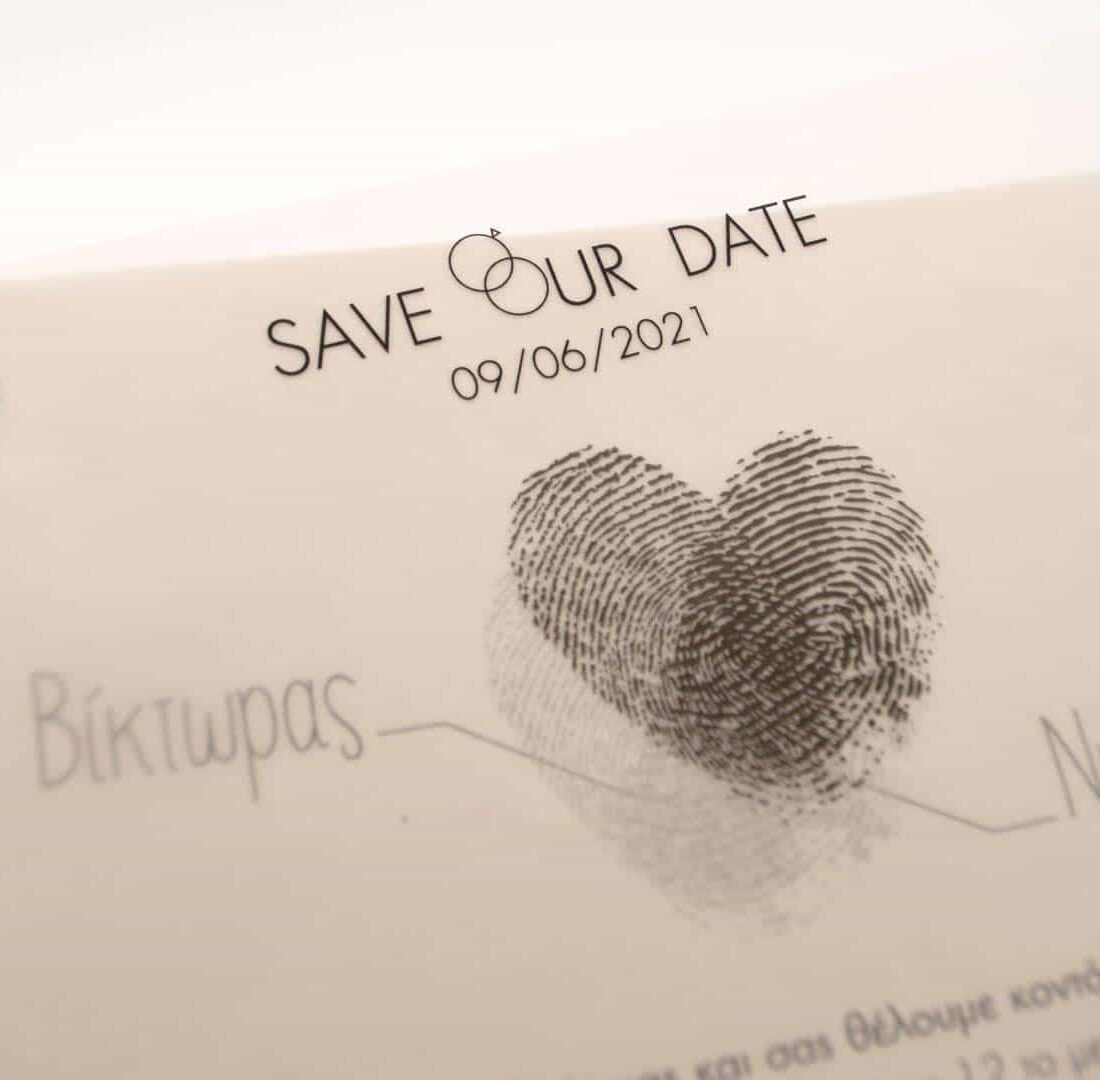 SAVE OUR DATE
09/06/2021
Βίκτωρας
και σας θέλουμε
12 το